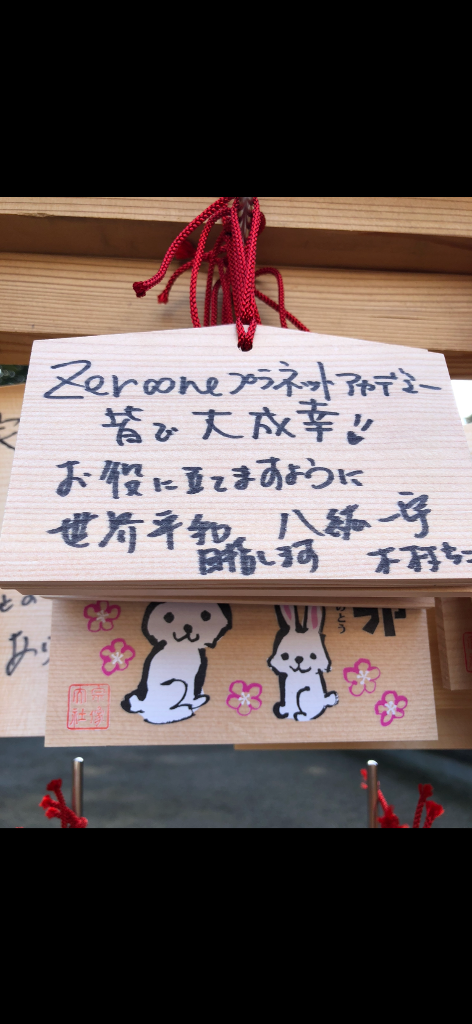 Zerooneプラネットアカデミー
皆で 大成幸!!
お役に立てますように
世界平和 八紘一宇
目指します 木村ち